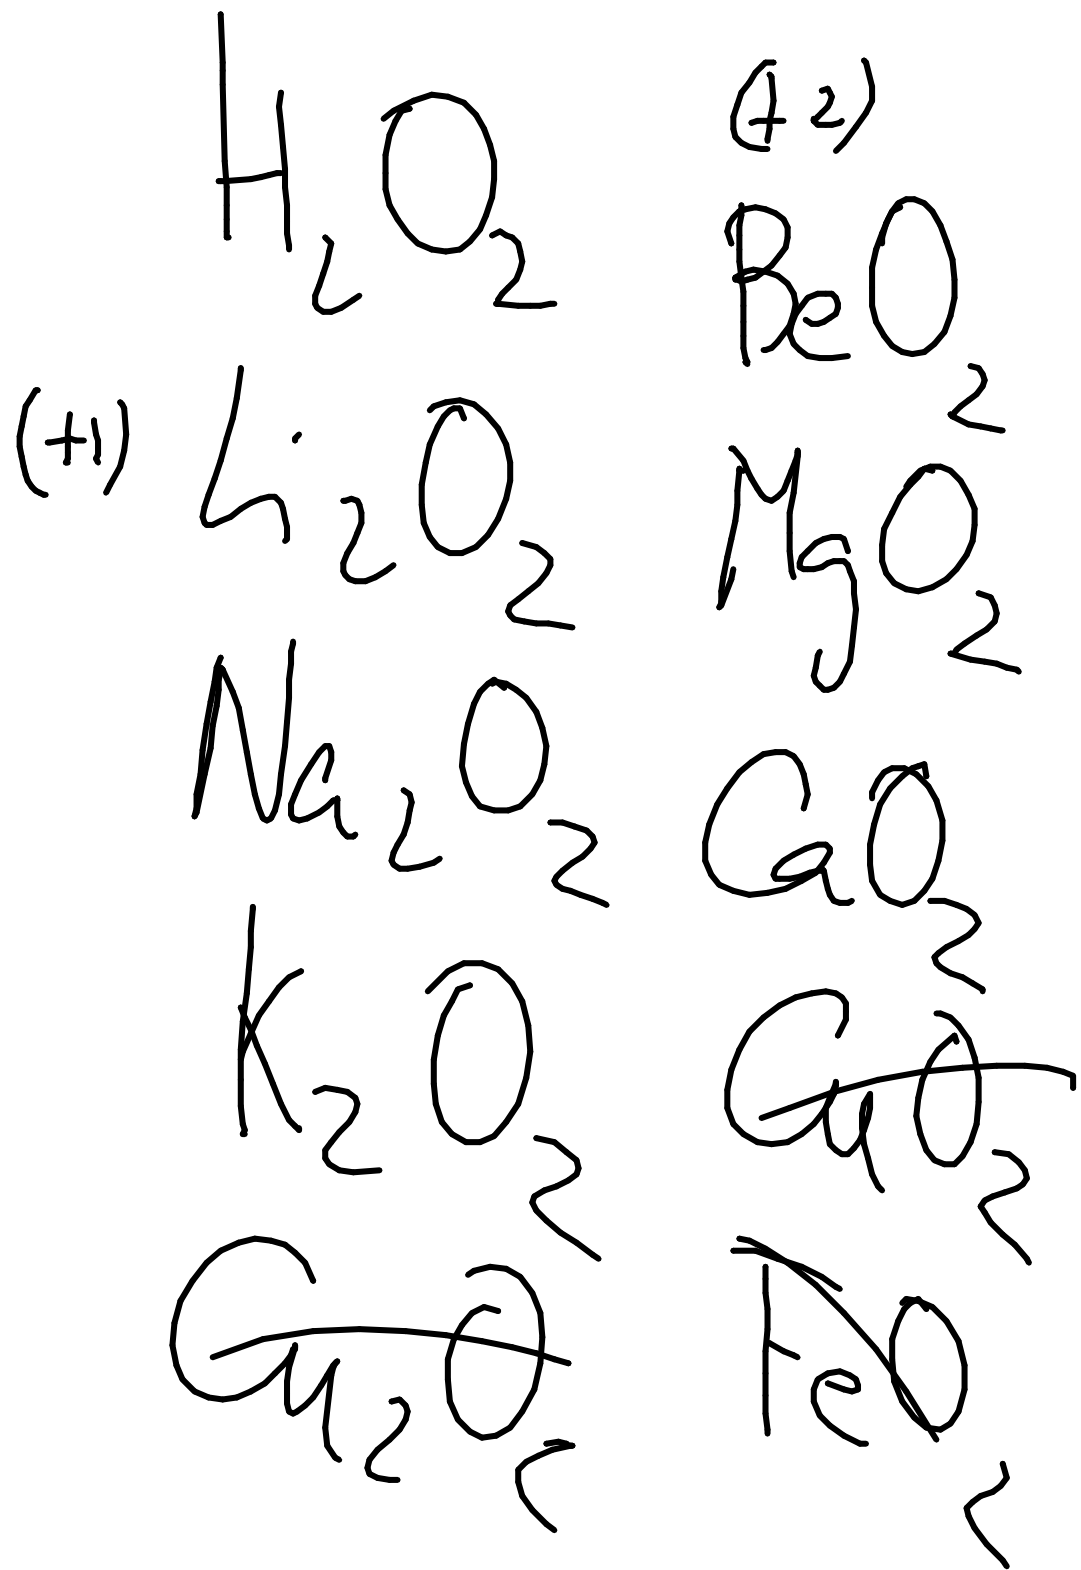 H₂O₂
(+1) Li₂O₂
Na₂O₂
K₂O₂
Cu₂O₂
(+2)
BeO₂
MgO₂
CaO₂
CuO₂
FeO₂